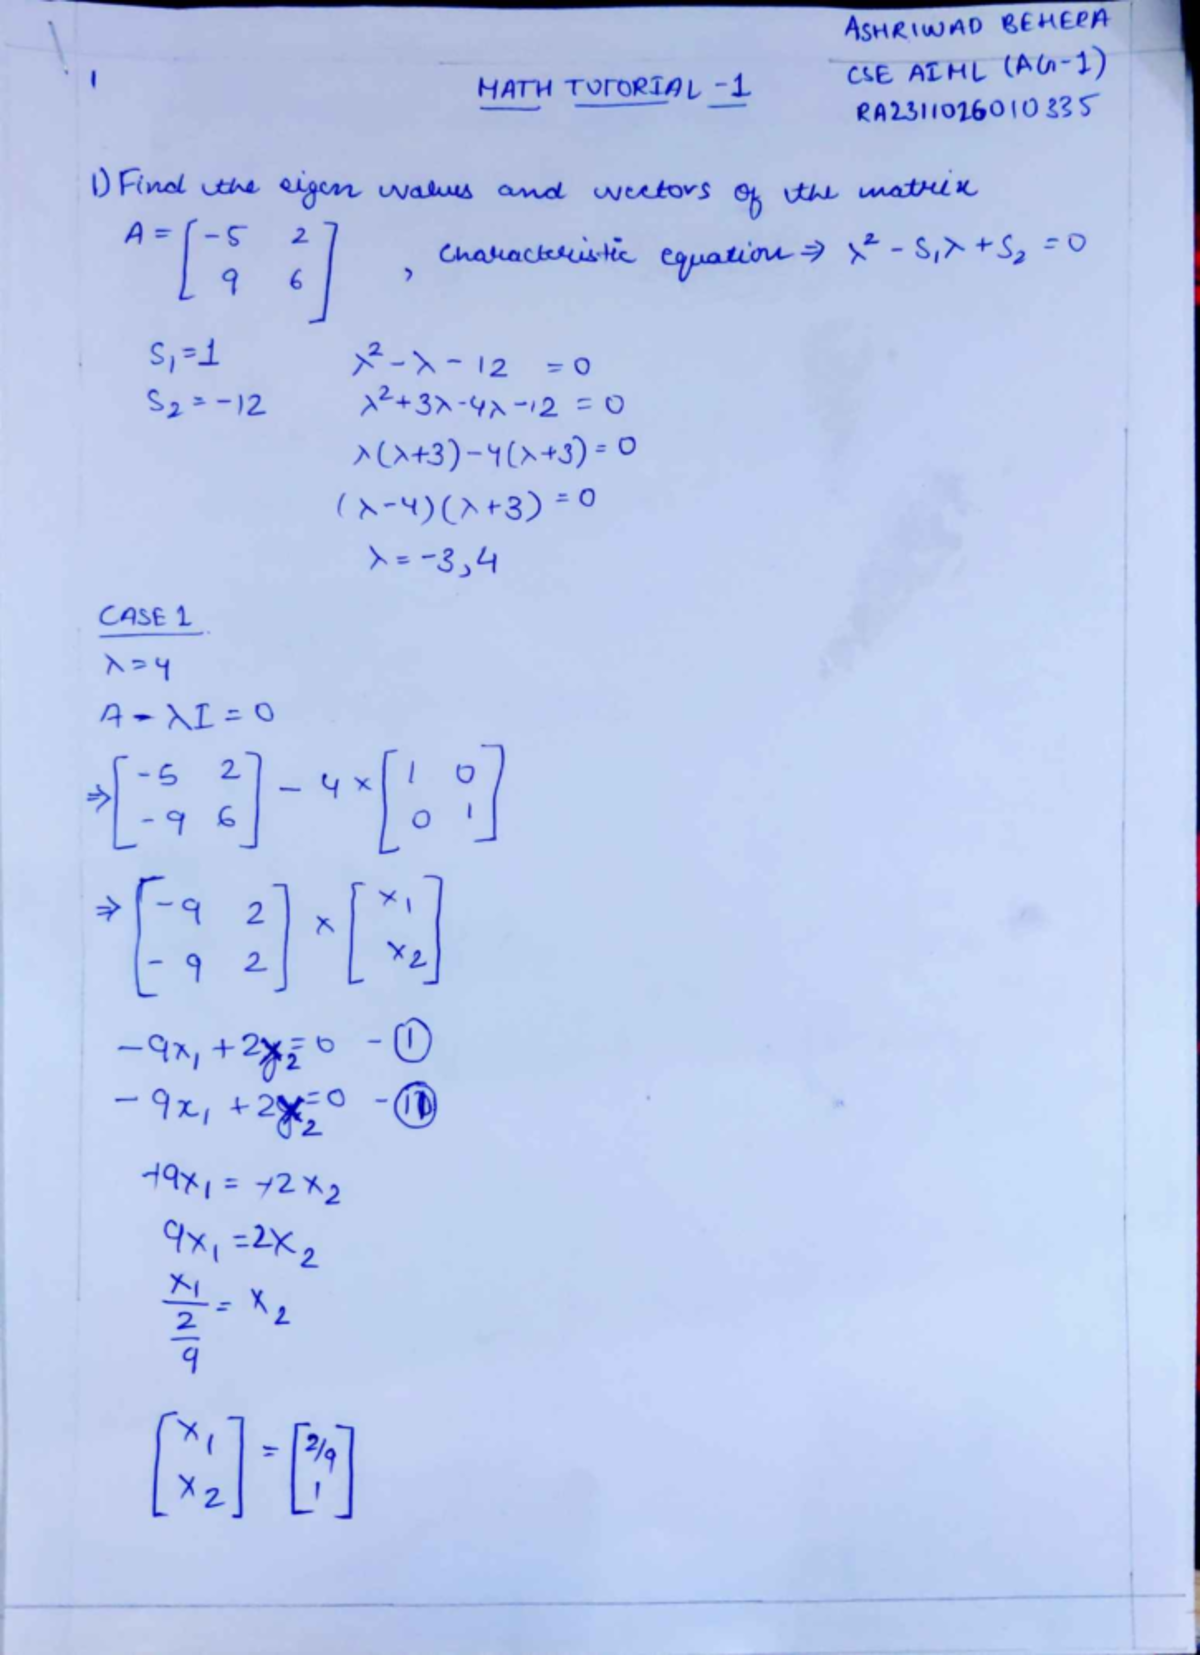 ASHRIWAD BEHERA
CSE AIML (AG-1)
RA2311026010335
1
MATH TUTORIAL -1
1) Find the eigen values and vectors of the matrix
A = [-5 2
9 6] , characteristic equation ⇒ λ² - S₁λ + S₂ = 0
S₁ = 1
λ² - λ - 12 = 0
S₂ = -12
λ² + 3λ - 4λ - 12 = 0
λ(λ+3) - 4(λ+3) = 0
(λ-4)(λ+3) = 0
λ = -3, 4
CASE 1
λ = 4
A - λI = 0
⇒ [-5 2
-9 6] - 4 × [1 0
0 1]
⇒ [-9 2
-9 2] × [x₁
x₂]
-9x₁ + 2x₂ = 0 - ①
-9x₁ + 2x₂ = 0 - ⑪
+9x₁ = +2x₂
9x₁ = 2x₂
x₁/(2/9) = x₂
[x₁
x₂] = [2/9
1]